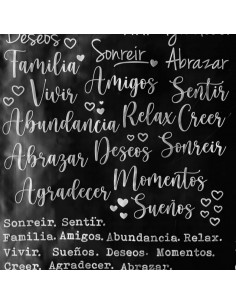 Deseos
Sonreir Abrazar
Familia
Amigos Sentir
Vivir
Abundancia Relax Creer
Abrazar Deseos Sonreir
Agradecer Momentos
Sueños
Sonreir. Sentir.
Familia. Amigos. Abundancia. Relax.
Vivir. Sueños. Deseos. Momentos.
Creer. Agradecer. Abrazar.